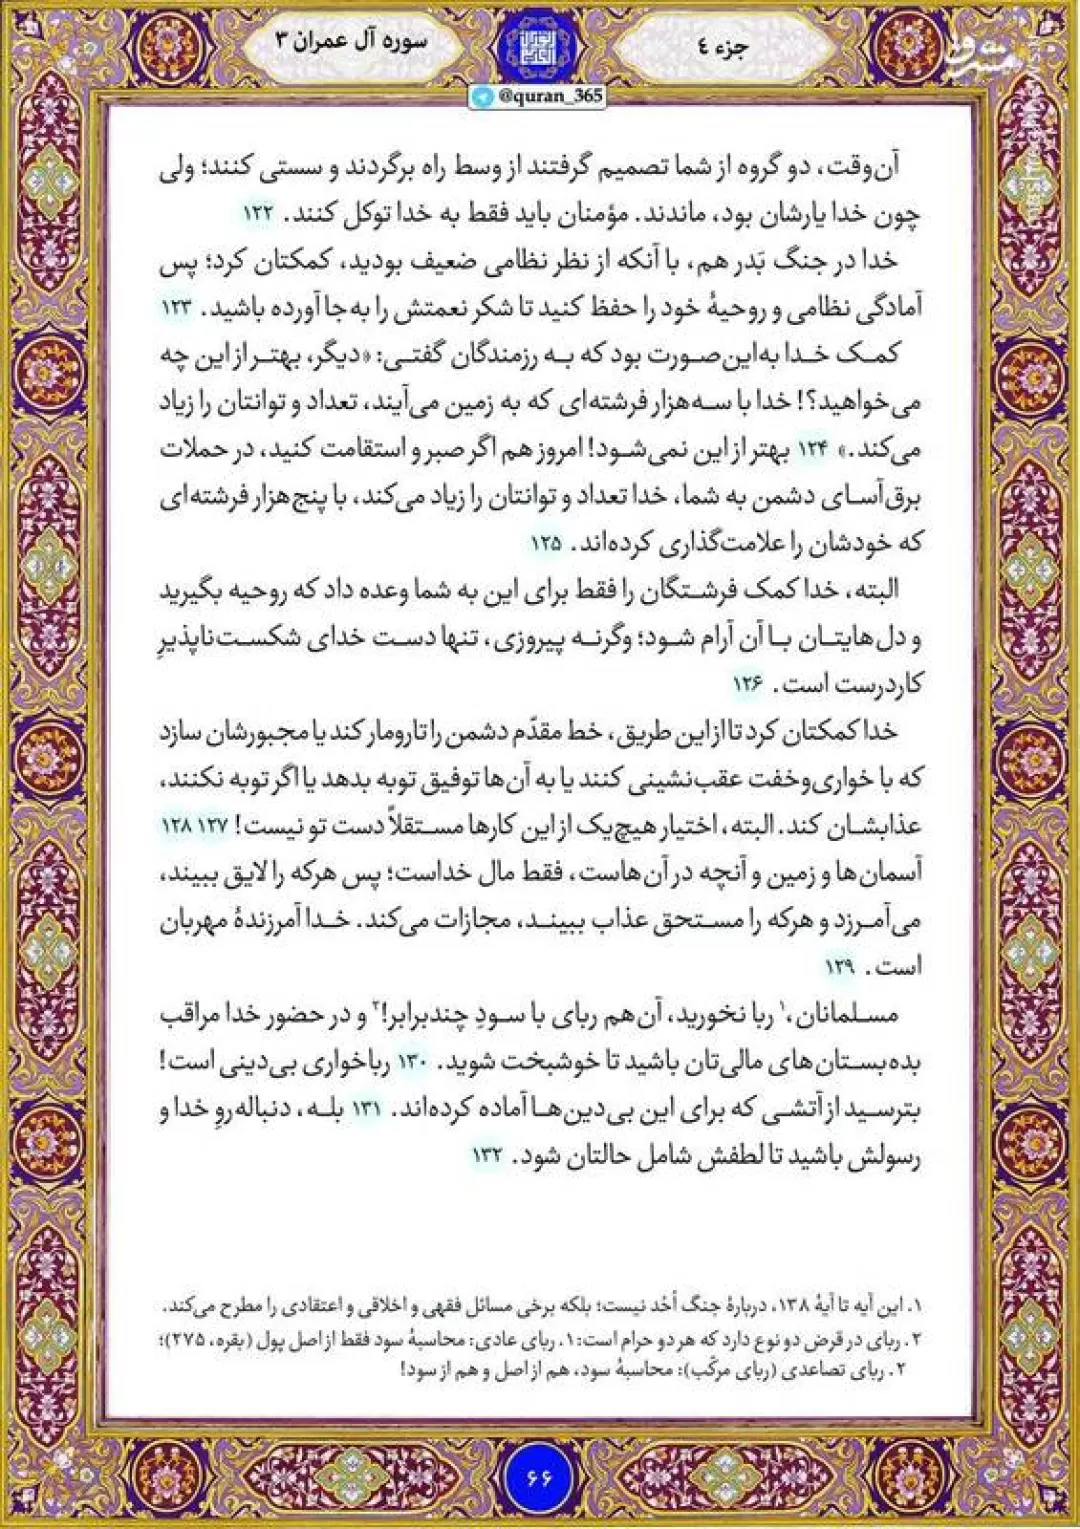 جزء ٤
سوره آل عمران ۳
مشرق
@quran_365
آن‌وقت، دو گروه از شما تصمیم گرفتند از وسط راه برگردند و سستی کنند؛ ولی
چون خدا یارشان بود، ماندند. مؤمنان باید فقط به خدا توکل کنند. ۱۲۲
خدا در جنگ بَدر هم، با آنکه از نظر نظامی ضعیف بودید، کمکتان کرد؛ پس
آمادگی نظامی و روحیهٔ خود را حفظ کنید تا شکر نعمتش را به‌جا آورده باشید. ۱۲۳
کمک خدا به‌این‌صورت بود که به رزمندگان گفتی: «دیگر، بهتر از این چه
می‌خواهید؟! خدا با سه‌هزار فرشته‌ای که به زمین می‌آیند، تعداد و توانتان را زیاد
می‌کند.» ۱۲۴ بهتر از این نمی‌شود! امروز هم اگر صبر و استقامت کنید، در حملات
برق‌آسای دشمن به شما، خدا تعداد و توانتان را زیاد می‌کند، با پنج‌هزار فرشته‌ای
که خودشان را علامت‌گذاری کرده‌اند. ۱۲۵
البته، خدا کمک فرشتگان را فقط برای این به شما وعده داد که روحیه بگیرید
و دل‌هایتان با آن آرام شود؛ وگرنه پیروزی، تنها دست خدای شکست‌ناپذیرِ
کاردرست است. ۱۲۶
خدا کمکتان کرد تا از این طریق، خط مقدّم دشمن را تارومار کند یا مجبورشان سازد
که با خواری‌وخفت عقب‌نشینی کنند یا به آن‌ها توفیق توبه بدهد یا اگر توبه نکنند،
عذابشان کند. البته، اختیار هیچ‌یک از این کارها مستقلاً دست تو نیست! ۱۲۷ ۱۲۸
آسمان‌ها و زمین و آنچه در آن‌هاست، فقط مال خداست؛ پس هرکه را لایق ببیند،
می‌آمرزد و هرکه را مستحق عذاب ببیند، مجازات می‌کند. خدا آمرزندهٔ مهربان
است. ۱۲۹
مسلمانان،۱ ربا نخورید، آن‌هم ربای با سودِ چندبرابر!۲ و در حضور خدا مراقب
بده‌بستان‌های مالی‌تان باشید تا خوشبخت شوید. ۱۳۰ رباخواری بی‌دینی است!
بترسید از آتشی که برای این بی‌دین‌ها آماده کرده‌اند. ۱۳۱ بله، دنباله‌روِ خدا و
رسولش باشید تا لطفش شامل حالتان شود. ۱۳۲
۱. این آیه تا آیهٔ ۱۳۸، دربارهٔ جنگ اُحُد نیست؛ بلکه برخی مسائل فقهی و اخلاقی و اعتقادی را مطرح می‌کند.
۲. ربای در قرض دو نوع دارد که هر دو حرام است: ۱. ربای عادی: محاسبهٔ سود فقط از اصل پول (بقره، ۲۷۵)؛
۲. ربای تصاعدی (ربای مرکّب): محاسبهٔ سود، هم از اصل و هم از سود!
۶۶